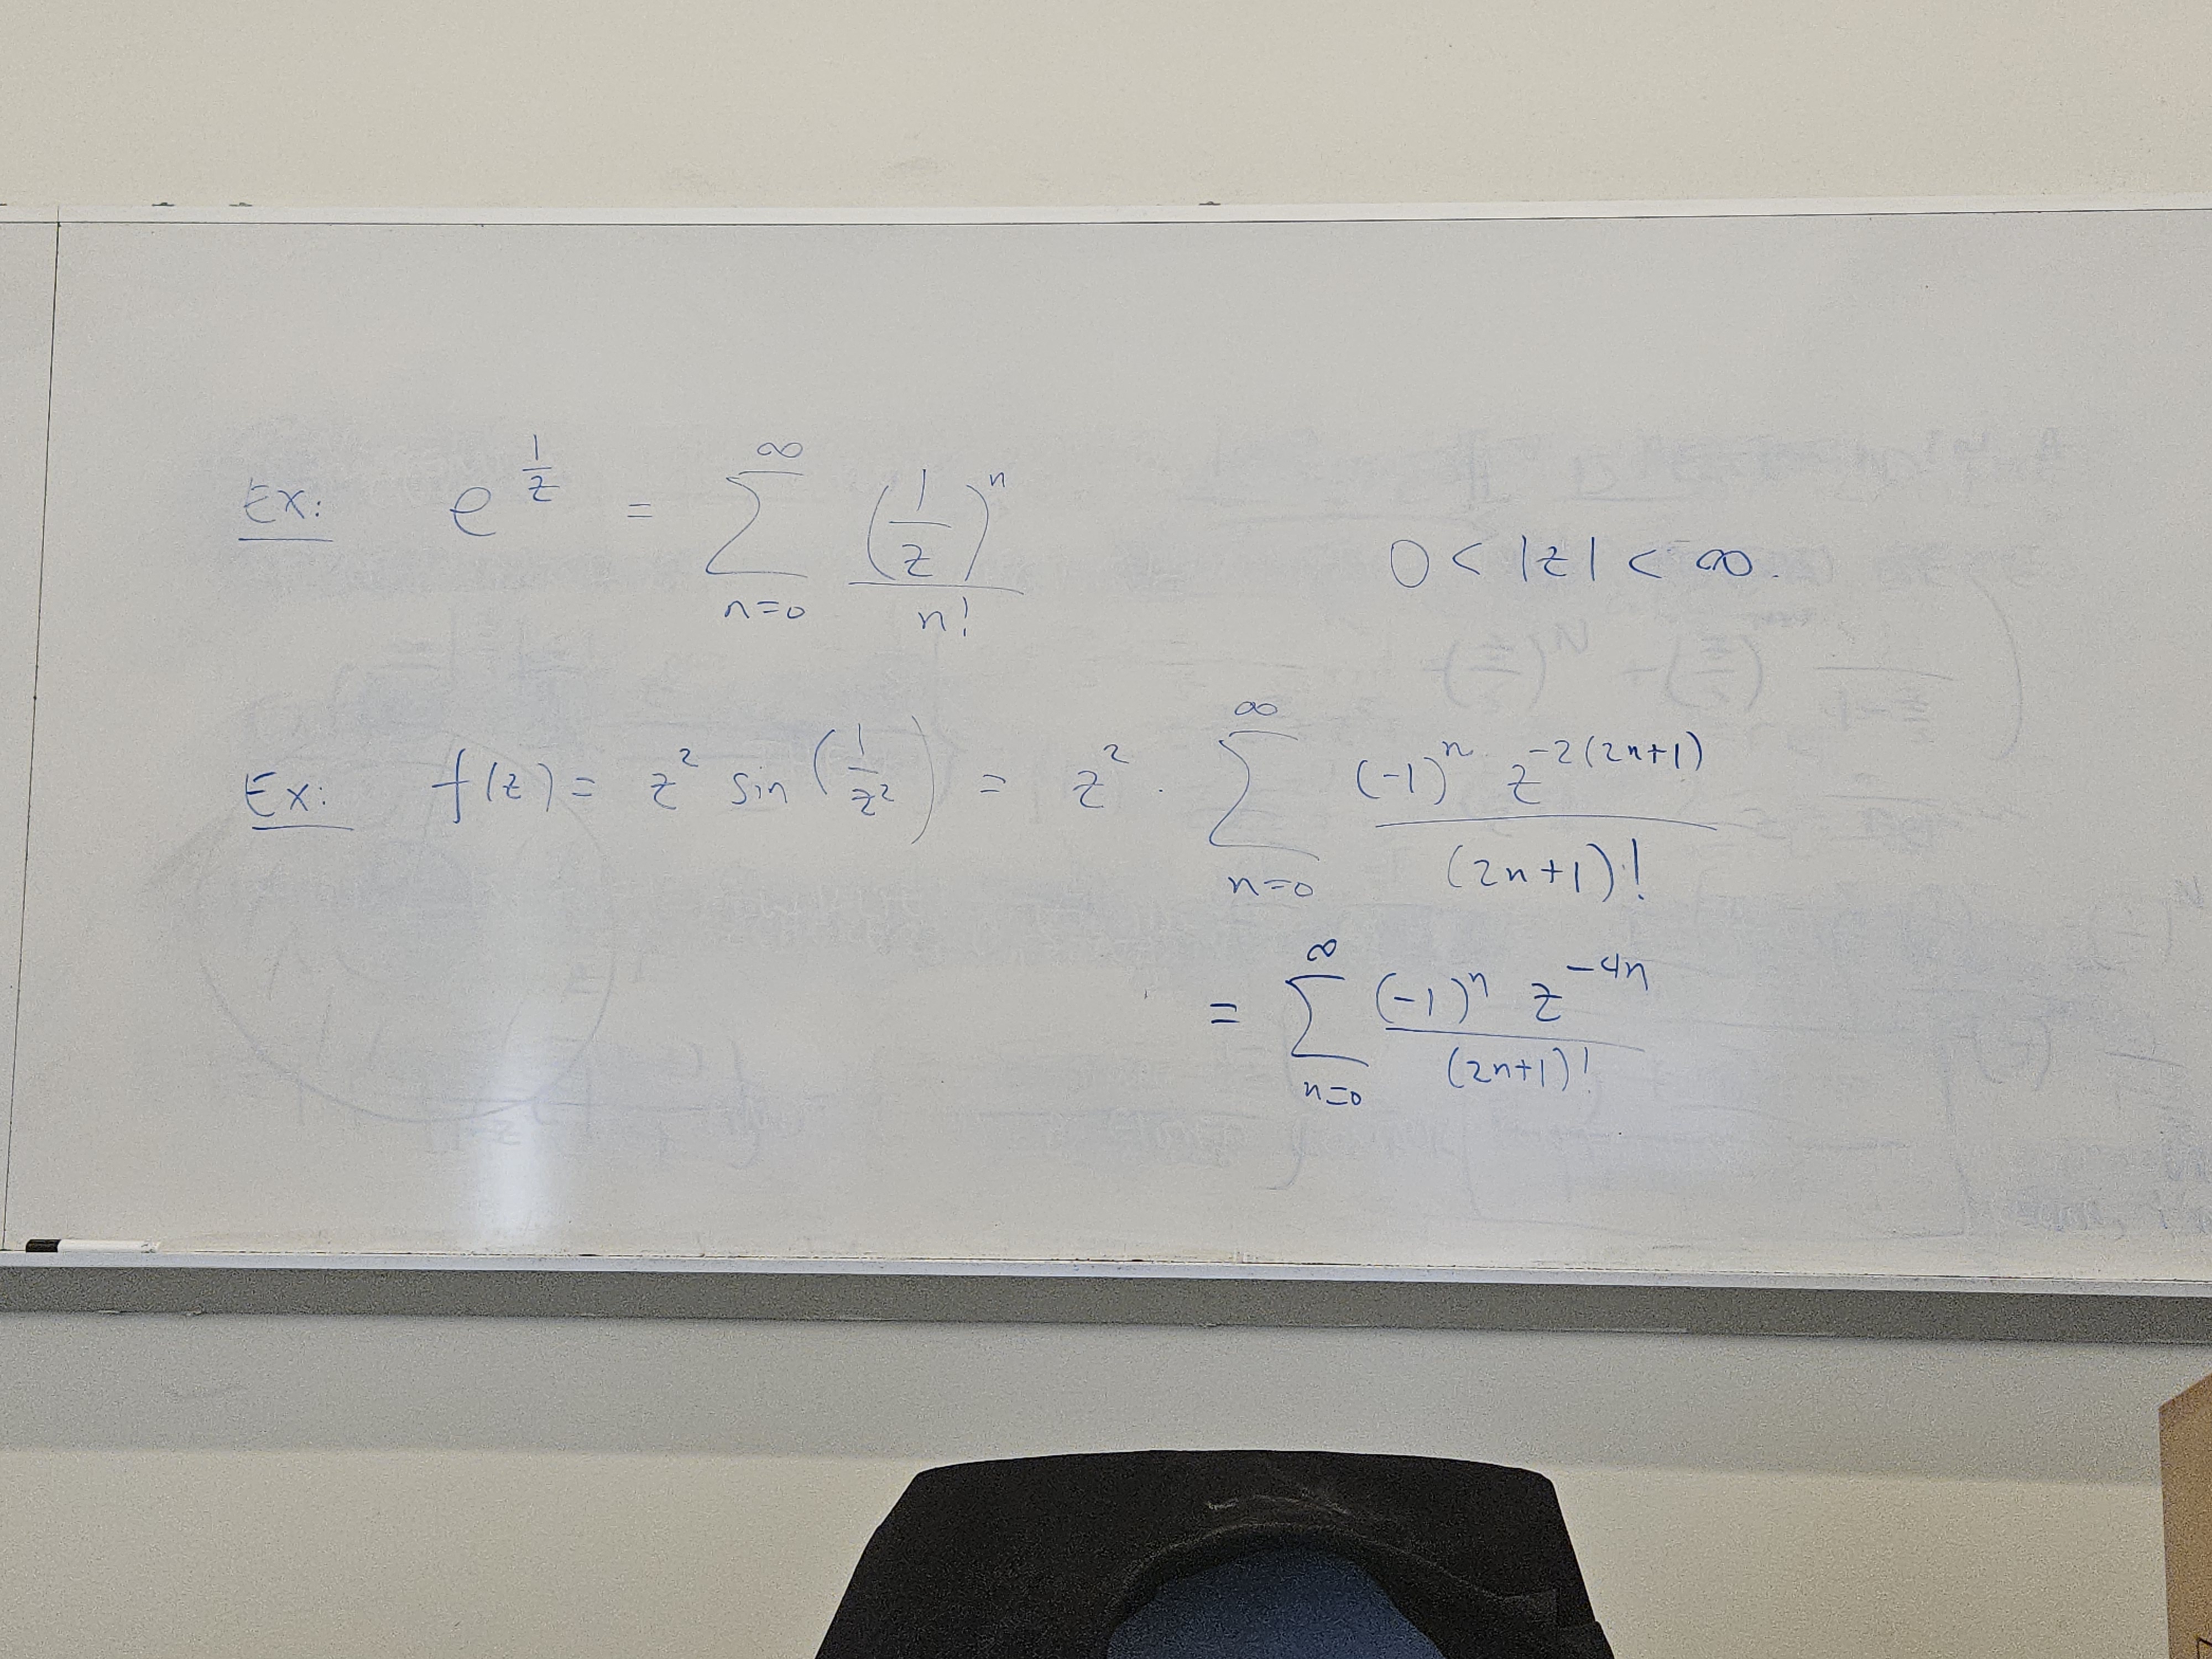 Ex: e^{1/z} = \sum_{n=0}^{∞} \frac{(\frac{1}{z})^n}{n!}    0 < |z| < ∞.
Ex: f(z) = z^2 sin(\frac{1}{z^2}) = z^2 · \sum_{n=0}^{∞} \frac{(-1)^n z^{-2(2n+1)}}{(2n+1)!}
= \sum_{n=0}^{∞} \frac{(-1)^n z^{-4n}}{(2n+1)!}